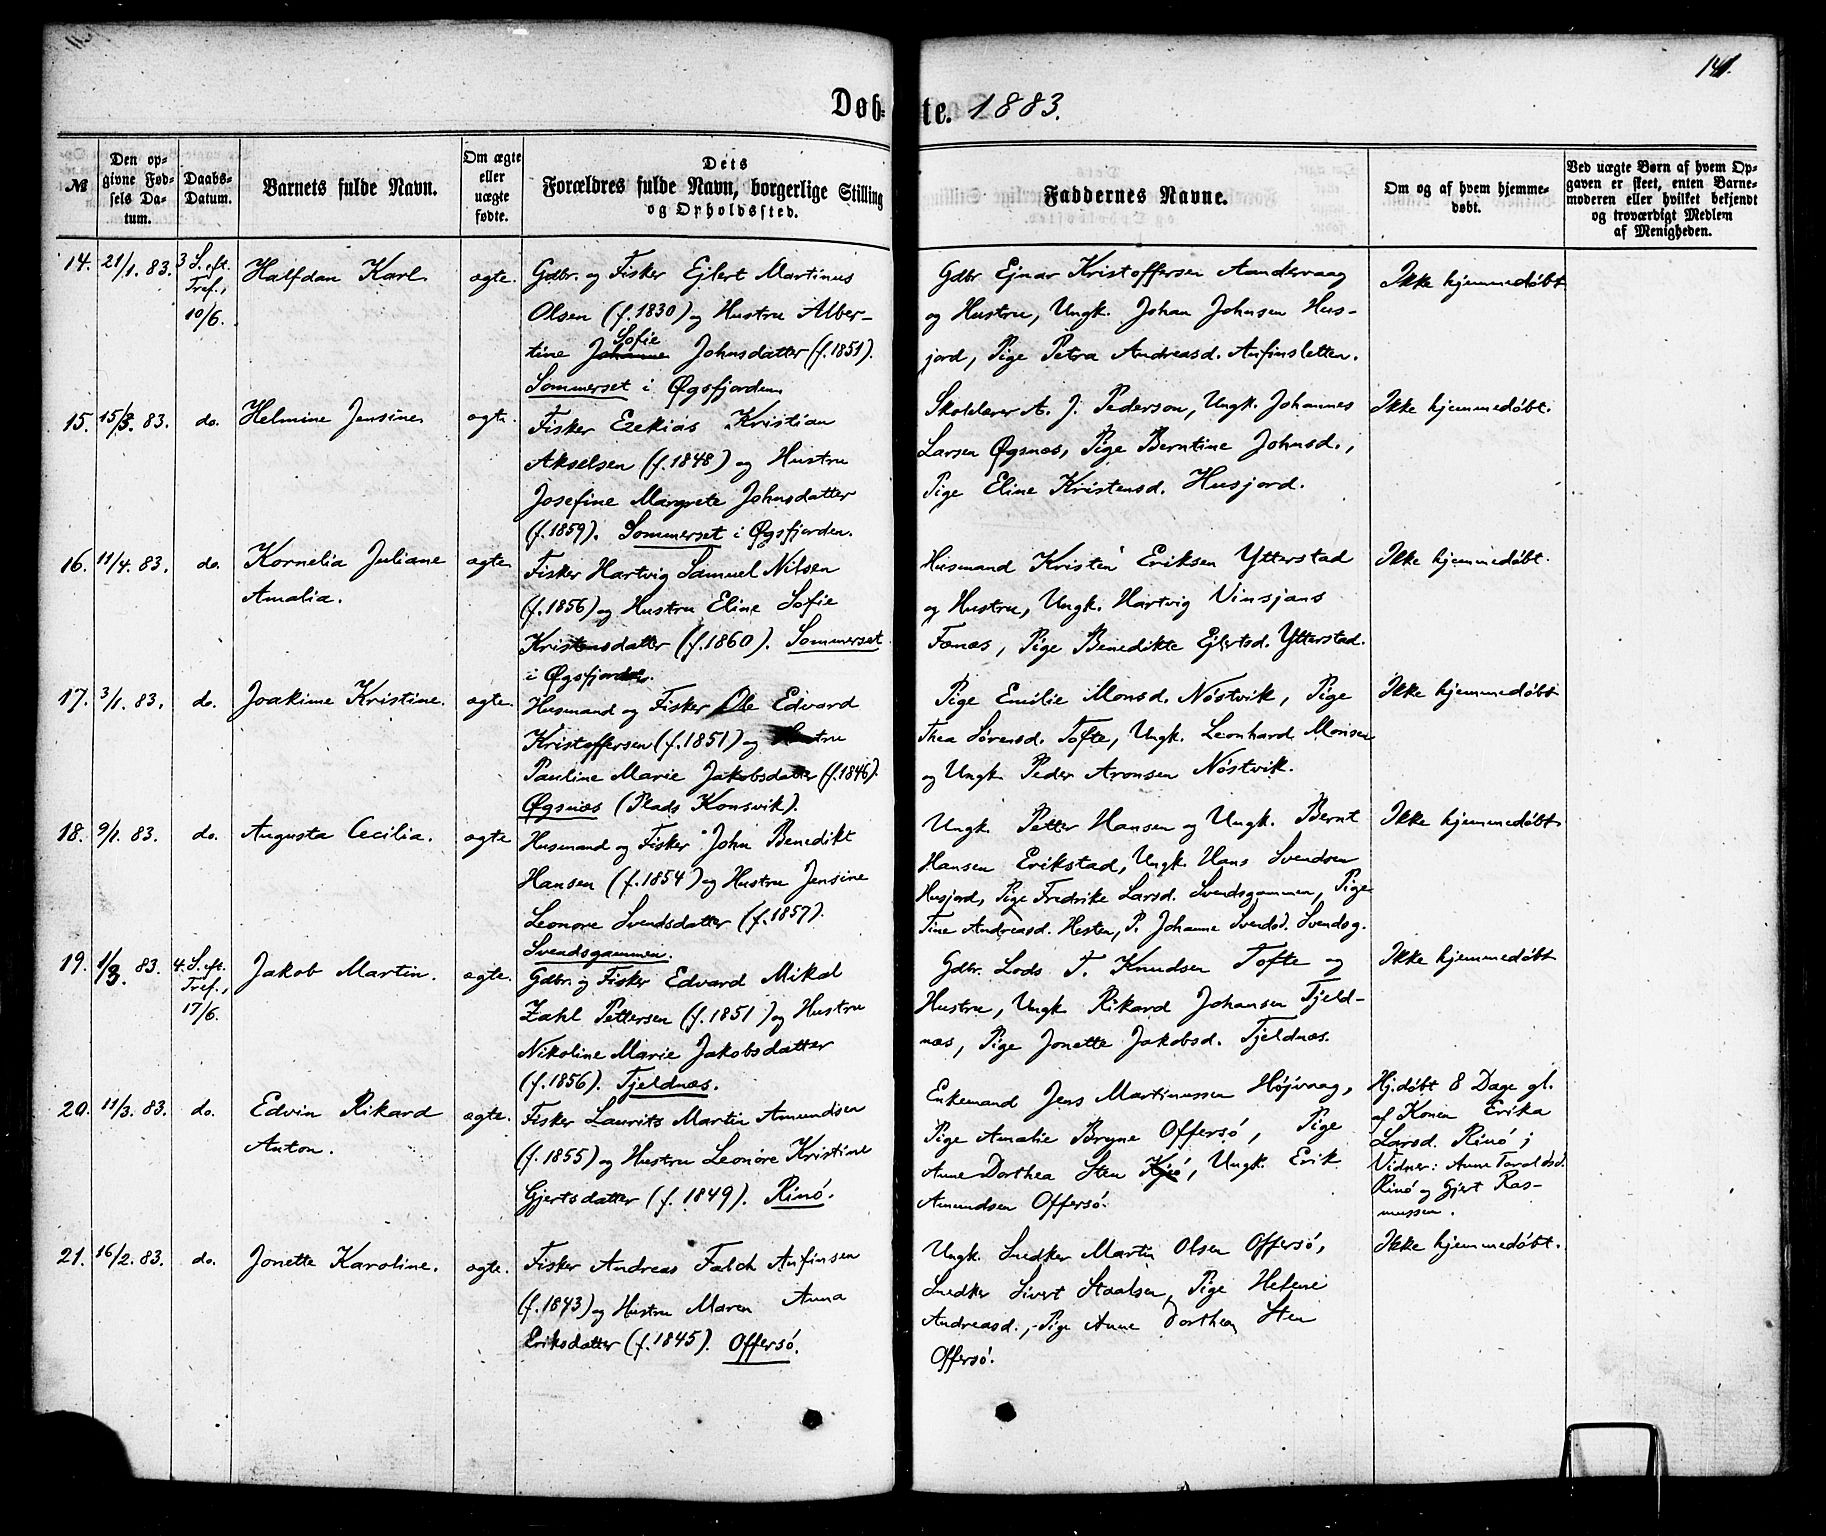 141.
Døb-te. 1883.
№
Den op-
givne Fød-
sels Da-
tum.
Daabs-
Datum.
Barnets fulde Navn.
Om ægte
eller
uægte
fødte.
Dets
Forældres fulde Navn, borgerlige Stilling
og Opholdssted.
Faddernes Navne.
Om og af hvem hjemme-
døbt.
Ved uægte Børn af hvem Op-
gaven er skeet, enten Barne-
moderen eller hvilket bekjendt
og troværdigt Medlem
af Menigheden.
14. 21/1. 83. 3 S. eft.
Tref.,
10/6.
Halfdan Karl
ægte.
Gdbr. og Fisker Ejlert Martinus
Olsen (f. 1830) og Hustru Alber-
Sofie
tine Johanne Johnsdatter (f. 1851).
Sommerset i Øgsfjorden
Gdbr Ejnar Kristoffersen Aandervaag
og Hustru, Ungk. Johan Johnsen Hus-
jord, Pige Petra Andreasd. Anfinsletten.
Ikke hjemmedøbt
15. 15/3. 83. do. Helmine Jensine ægte.
Fisker Ezekias Kristian
Akselsen (f. 1848) og Hustru
Josefine Margrete Johnsdatter
(f. 1859). Sommerset i Øgsfjorden.
Skolelærer A. J. Pederson, Ungk. Johannes
Larsen Øgsnæs, Pige Berntine Johnsd.,
Pige Eline Kristensd. Husjord.
Ikke hjemmedøbt.
16. 11/4. 83. do. Kornelia Juliane
Amalia.
ægte.
Fisker Hartvig Samuel Nilsen
(f. 1856) og Hustru Eline Sofie
Kristensdatter (f. 1860). Sommerset
i Øgsfjorden.
Husmand Kristen Eriksen Ytterstad
og Hustru, Ungk. Hartvig Vinsjans
Fænæs, Pige Benedikte Ejlertsd. Ytterstad.
Ikke hjemmedøbt.
17. 3/1. 83. do. Joakime Kristine. ægte.
Husmand og Fisker Ole Edvard
Kristoffersen (f. 1851) og Hustru
Pauline Marie Jakobsdatter (f. 1846).
Øgsnæs (Plads Konsvik).
Pige Emilie Monsd. Nöstvik, Pige
Thea Sörensd. Tofte, Ungk. Leonhard Monsen
og Ungk. Peder Aronsen Nöstvik.
Ikke hjemmedøbt
18. 9/1. 83. do. Augusta Cecilia. ægte
Husmand og Fisker John Benedikt
Hansen (f. 1854) og Hustru Jensine
Leonore Svendsdatter (f. 1857).
Svendsgammen.
Ungk. Petter Hansen og Ungk. Bernt
Hansen Erikstad, Ungk. Hans Svendsen
Husjord, Pige Fredrike Larsd. Svendsgammen, Pige
Tine Andreasd. Hesten, P. Johanne Svendsd. Svendsg.
Ikke hjemmedøbt
19. 1/3. 83. 4. S. eft.
Tref.,
17/6.
Jakob Martin. ægte.
Gdbr. og Fisker Edvard Mikal
Zahl Pettersen (f. 1851) og Hustru
Nikoline Marie Jakobsdatter
(f. 1856). Tjeldnæs.
Gdbr. Lods T. Knudsen Tofte og
Hustru, Ungk. Rikard Johansen Tjeld-
næs, Pige Jonette Jakobsd. Tjeldnæs.
Ikke hjemmedøbt
20. 11/3. 83. do. Edvin Rikard
Anton.
ægte.
Fisker Laurits Martin Amundsen
(f. 1855) og Hustru Leonore Kristine
Gjertsdatter (f. 1849). Rinö.
Enkemand Jens Martinussen Höjvaag,
Pige Amalie Bryne Offersö, Pige
Anne Dorthea Sten Kjö, Ungk. Erik
Amundsen Offersö.
Hj.døbt 8 Dage gl.
af Konen Erika
Larsd. Rinö;
Vidner: Anne Taraldsd.
Rinö og Gjert Ras-
mussen.
21. 16/2. 83. do. Jonette Karoline. ægte.
Fisker Andreas Falch Anfinsen
(f. 1843) og Hustru Maren Anna
Eriksdatter (f. 1845). Offersö.
Ungk. Snedker Martin Olsen Offersö,
Snedker Sivert Staalsen, Pige Helene
Andreasd., Pige Anne Dorthea Sten
Offersö.
Ikke hjemmedøbt.